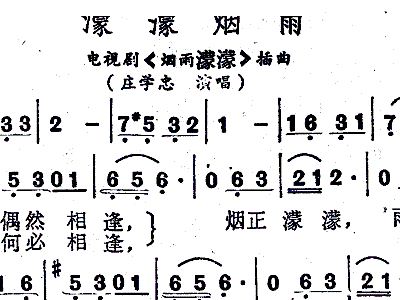 濛濛烟雨
电视剧《烟雨濛濛》插曲
(庄学忠 演唱)
33 | 2 – | 7 #5 32 | 1 – | 16 31 | 7
5 301 | 656· | 0 63 | 212· | 0
偶然 相逢，} 烟正 濛 濛， 雨
何必 相逢，
1 6 | #5 301 | 656· | 0 63 | 212· | 0